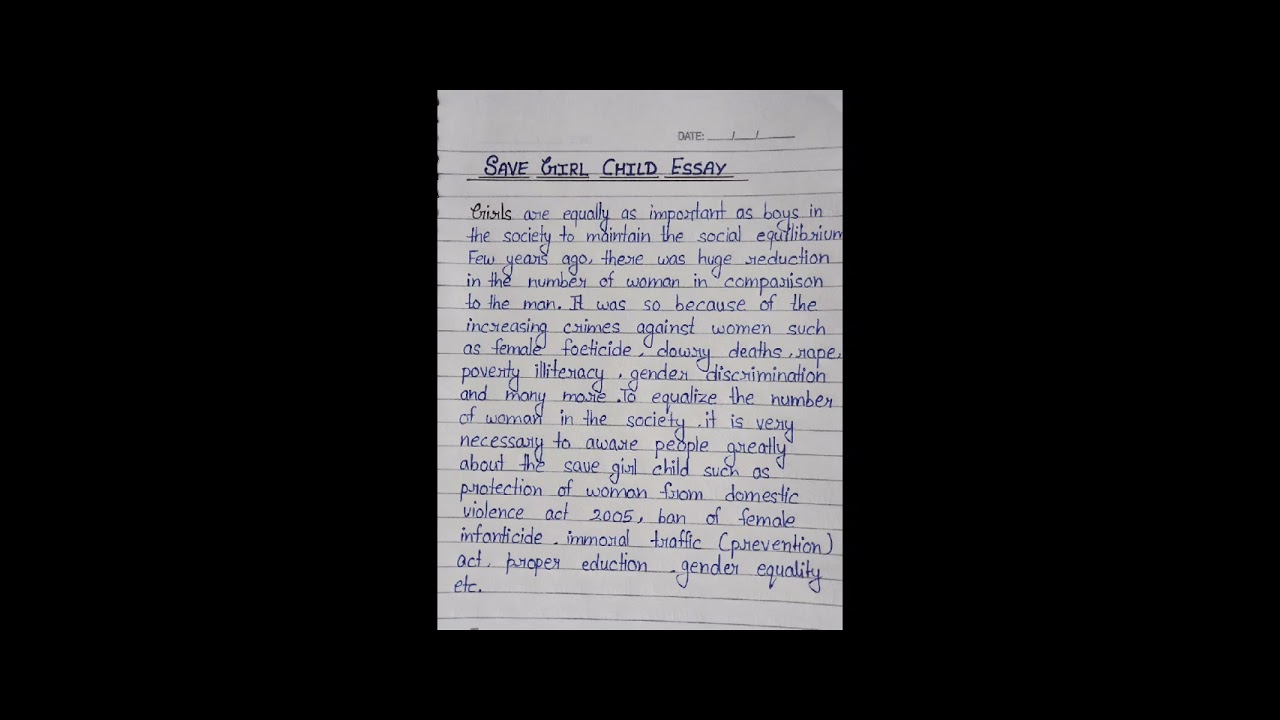 DATE: __/__/____
SAVE GIRL CHILD ESSAY
Girls are equally as important as boys in
the society to maintain the social equilibrium
Few years ago, there was huge reduction
in the number of woman in comparison
to the man. It was so because of the
increasing crimes against women such
as female foeticide, dowry deaths, rape,
poverty illiteracy, gender discrimination
and many more. To equalize the number
of woman in the society, it is very
necessary to aware people greatly
about the save girl child such as
protection of woman from domestic
violence act 2005, ban of female
infanticide, immoral traffic (prevention)
act, proper eduction, gender equality
etc.